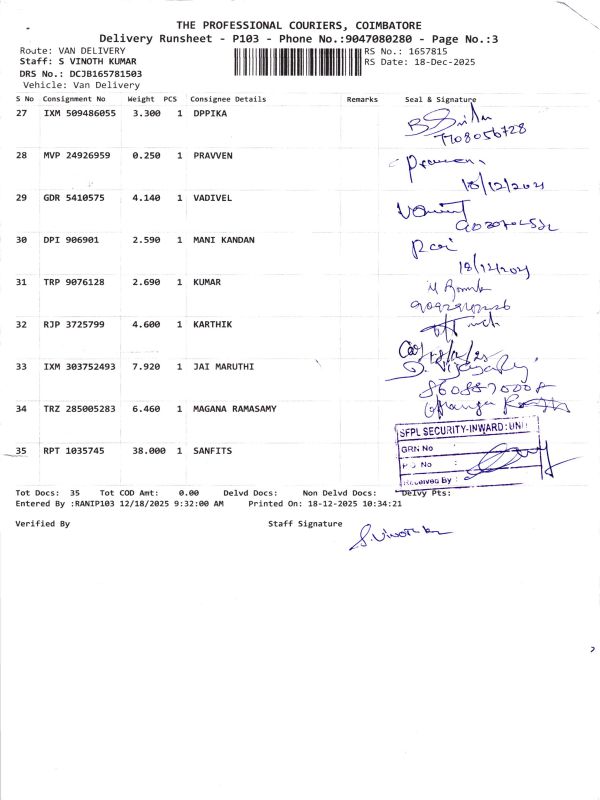 THE PROFESSIONAL COURIERS, COIMBATORE
Delivery Runsheet - P103 - Phone No.:9047080280 - Page No.:3
Route: VAN DELIVERY
RS No.: 1657815
Staff: S VINOTH KUMAR
RS Date: 18-Dec-2025
DRS No.: DCJB165781503
Vehicle: Van Delivery
S No Consignment No Weight PCS Consignee Details Remarks Seal & Signature
27 IXM 509486055 3.300 1 DPPIKA
7708056728
28 MVP 24926959 0.250 1 PRAVVEN
Praveen.
18/12/2021
29 GDR 5410575 4.140 1 VADIVEL
30 DPI 906901 2.590 1 MANI KANDAN
18/12/2021
31 TRP 9076128 2.690 1 KUMAR
32 RJP 3725799 4.600 1 KARTHIK
33 IXM 303752493 7.920 1 JAI MARUTHI
34 TRZ 285005283 6.460 1 MAGANA RAMASAMY
SFPL SECURITY-INWARD: UNI
GRN No :
35 RPT 1035745 38.000 1 SANFITS
No :
Received By :
Tot Docs: 35 Tot COD Amt: 0.00 Delvd Docs: Non Delvd Docs: Delvy Pts:
Entered By :RANIP103 12/18/2025 9:32:00 AM Printed On: 18-12-2025 10:34:21
Verified By Staff Signature
S. Vinoth